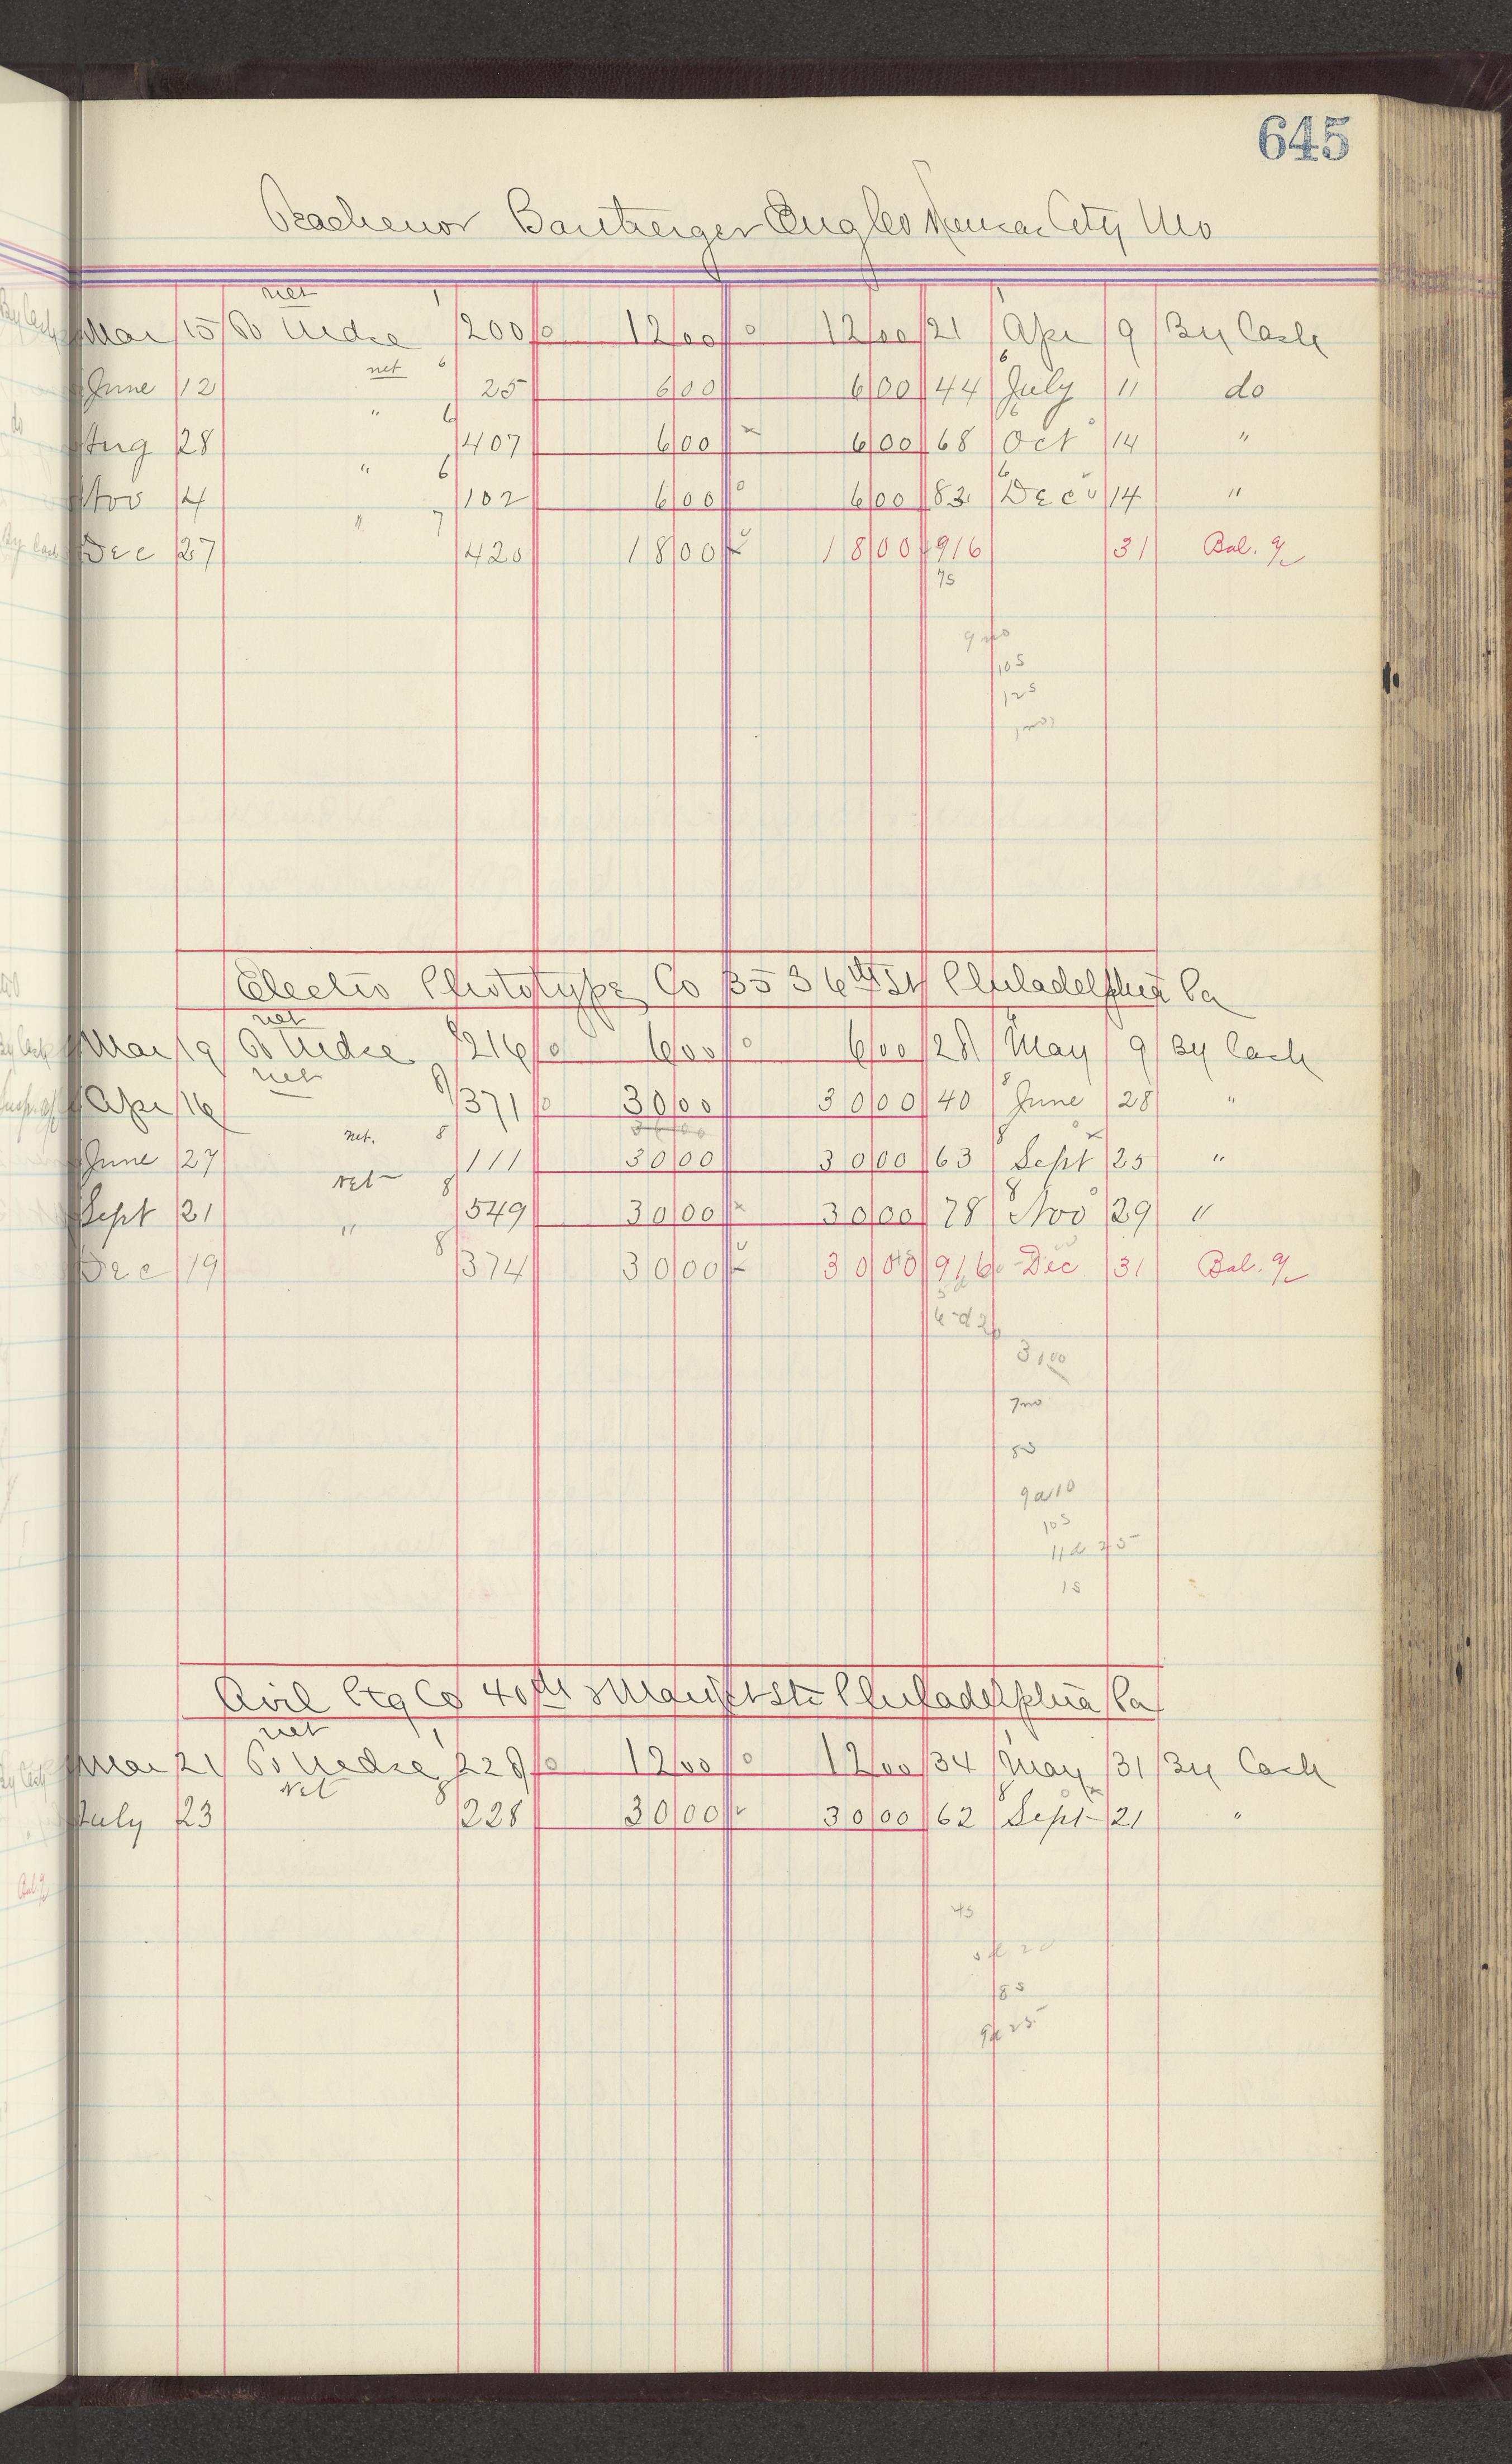 645
Bamberger Kansas City Mo
net 1
Mar 15 To Mdse 200 12 00 12 00 21 Apr 9 By Cash
net 6 6
June 12 25 6 00 6 00 44 July 11 do
" 6 6
Aug 28 407 6 00 6 00 68 Oct 14 "
" 6 6
Nov 4 102 6 00 6 00 83 Dec 14 "
" 7
Dec 27 420 18 00 18 00 916 31 Bal. a/c
7s
9 mo
10s
12s
Electro Phototype Co 35 S 6th St Philadelphia Pa
net
Mar 19 To Mdse 216 6 00 6 00 28 May 9 By Cash
net 8 8
Apr 16 371 30 00 30 00 40 June 28 "
net. 8 8
June 27 111 30 00 30 00 63 Sept 25 "
net 8 8
Sept 21 549 30 00 30 00 78 Nov 29 "
" 8
Dec 19 374 30 00 30 00 916 Dec 31 Bal. a/c
6 d 20
7mo
8s
9a10
10s
11d 25
1s
Avil Ptg Co 40th & Market Sts Philadelphia Pa
net 1 1
Mar 21 To Mdse 228 12 00 12 00 34 May 31 By Cash
net 8 8
July 23 228 30 00 30 00 62 Sept 21 "
4s
8s
9d 25